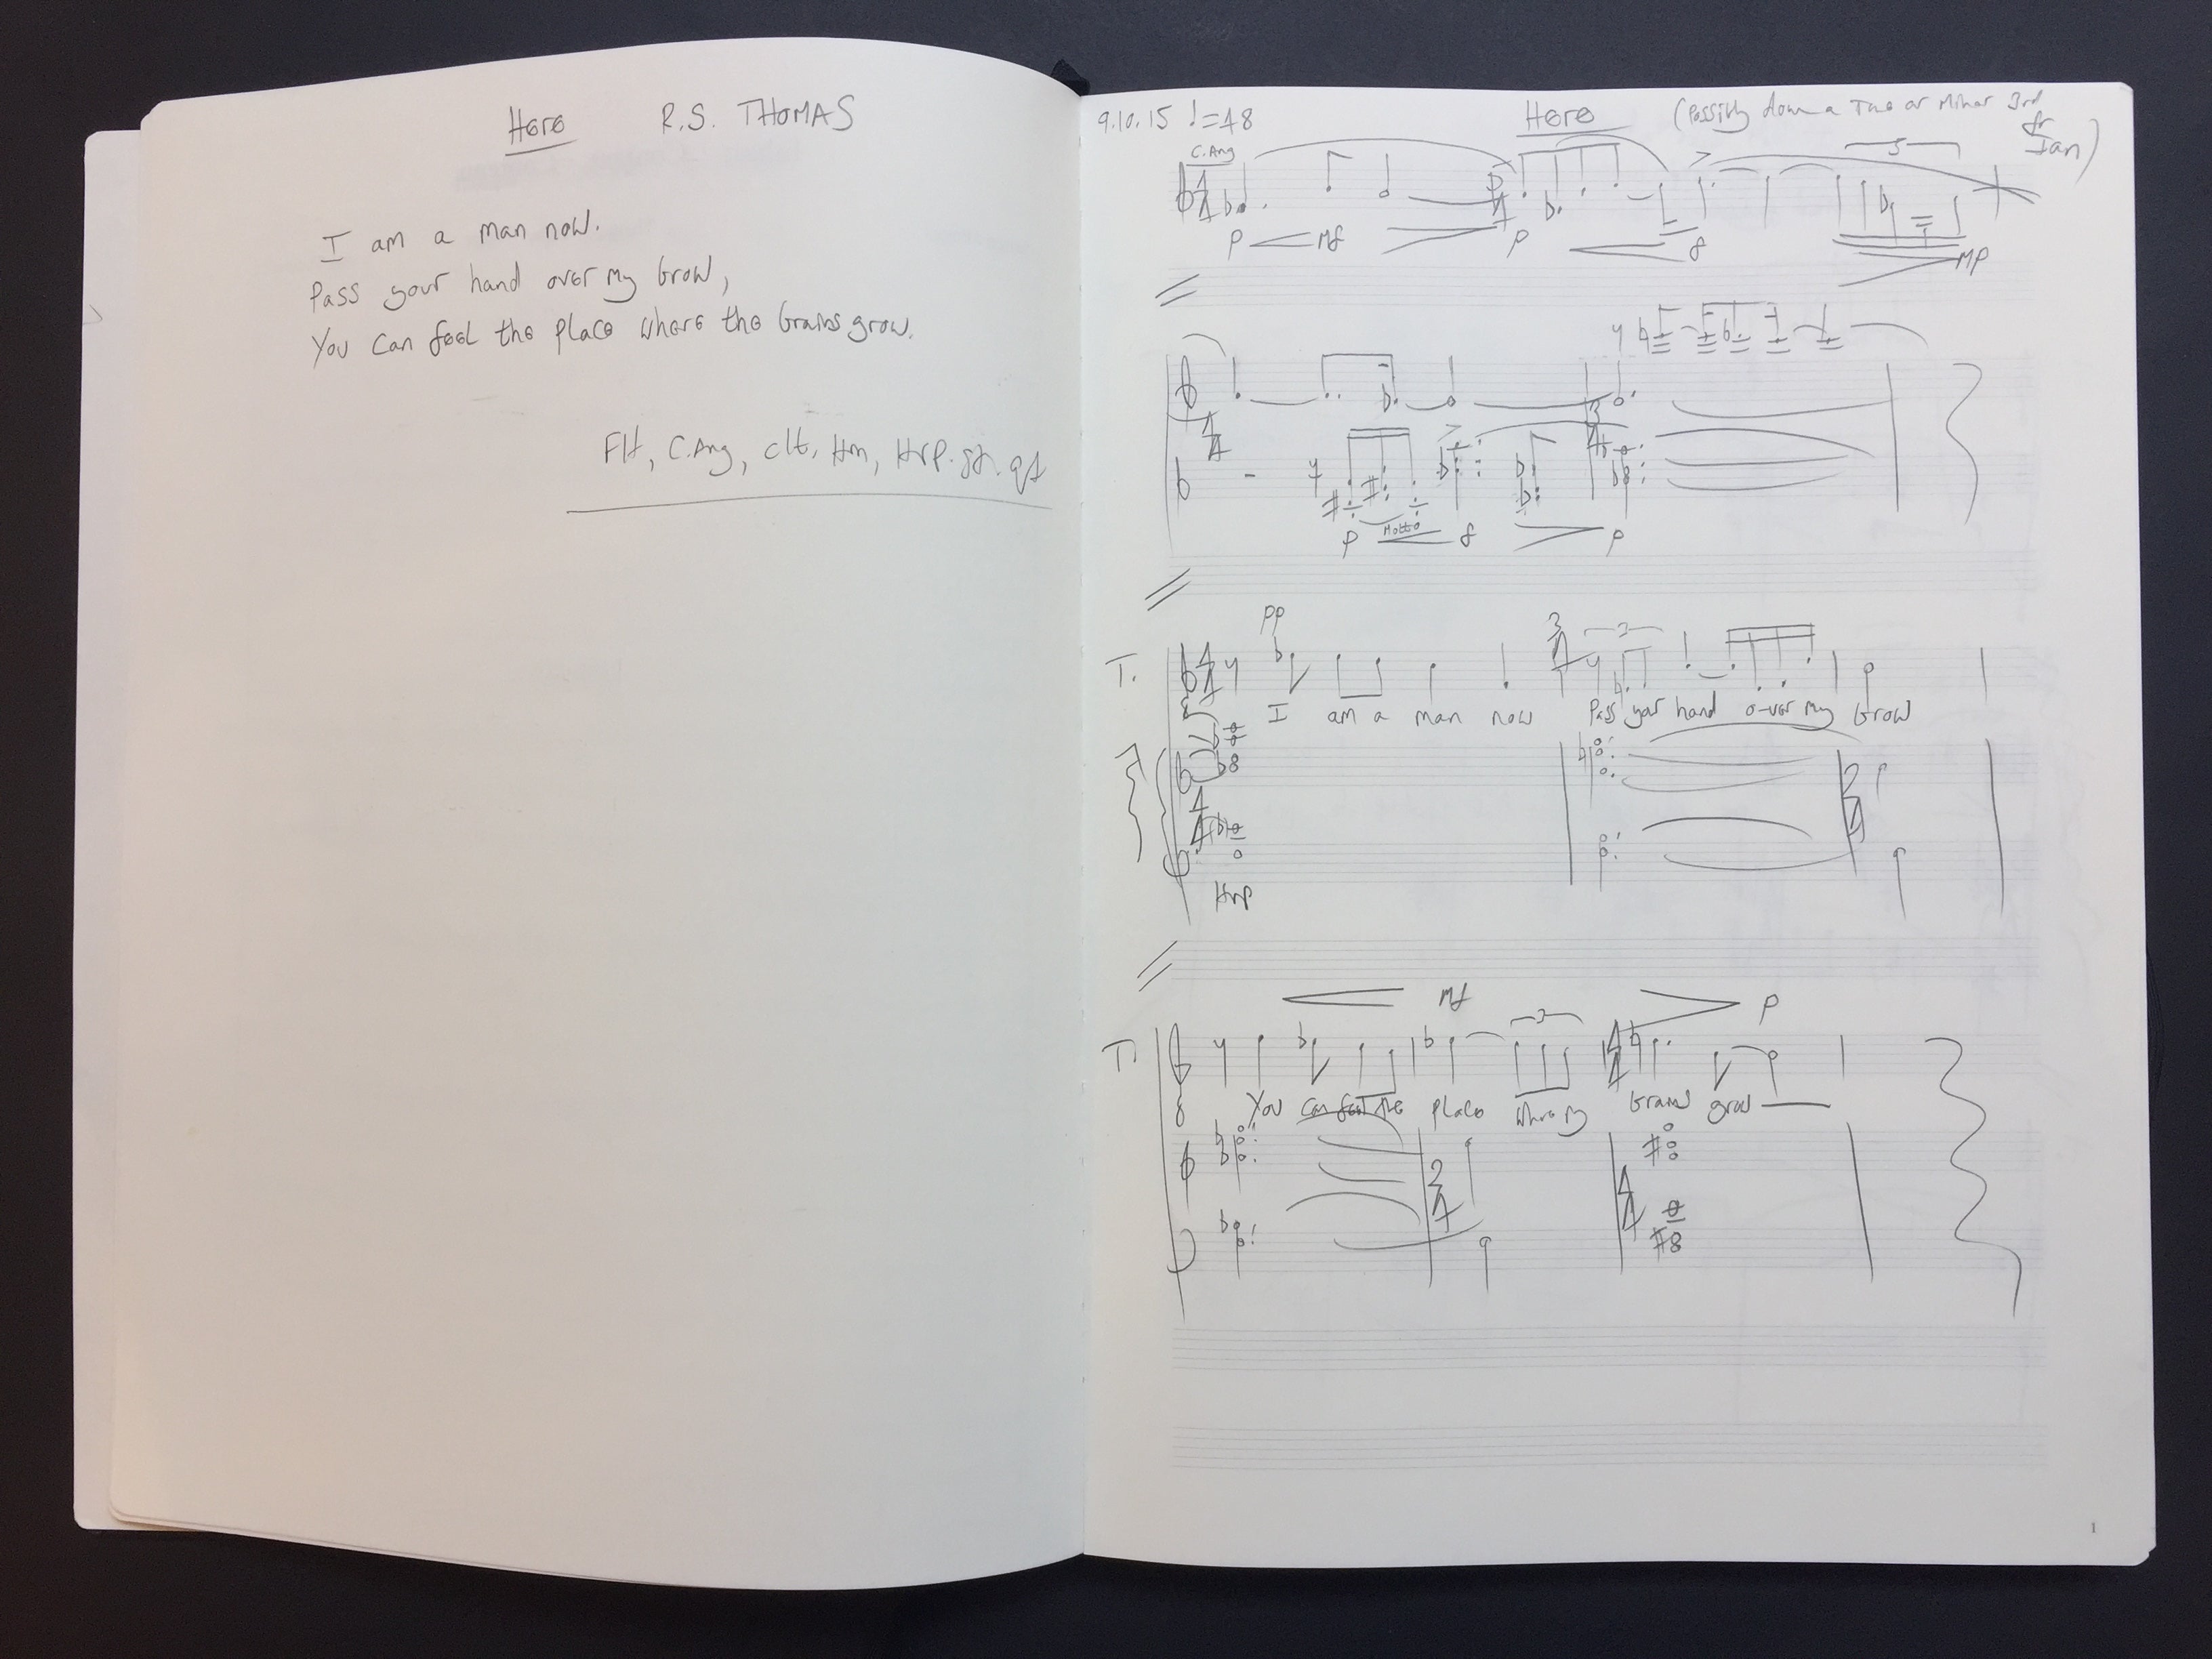 Here R.S. THOMAS
I am a man now.
Pass your hand over my brow,
You can feel the place where the brains grow.
Flt, C.Ang, clt, Hrn, Hrp. str. qt
9.10.15 ♩=48 Here (Possibly down a Tone or Minor 3rd
for
Ian)
C.Ang
5
4/4 3/4
p mf p f mp
4/4 3/4
Molto
p f p
pp
T. 4/4 3/4 3
I am a man now Pass your hand o-ver my brow
4/4 2/4
Hrp
mf p
T. 3 4/4
8 You can feel the place where my brains grow
2/4 4/4
1